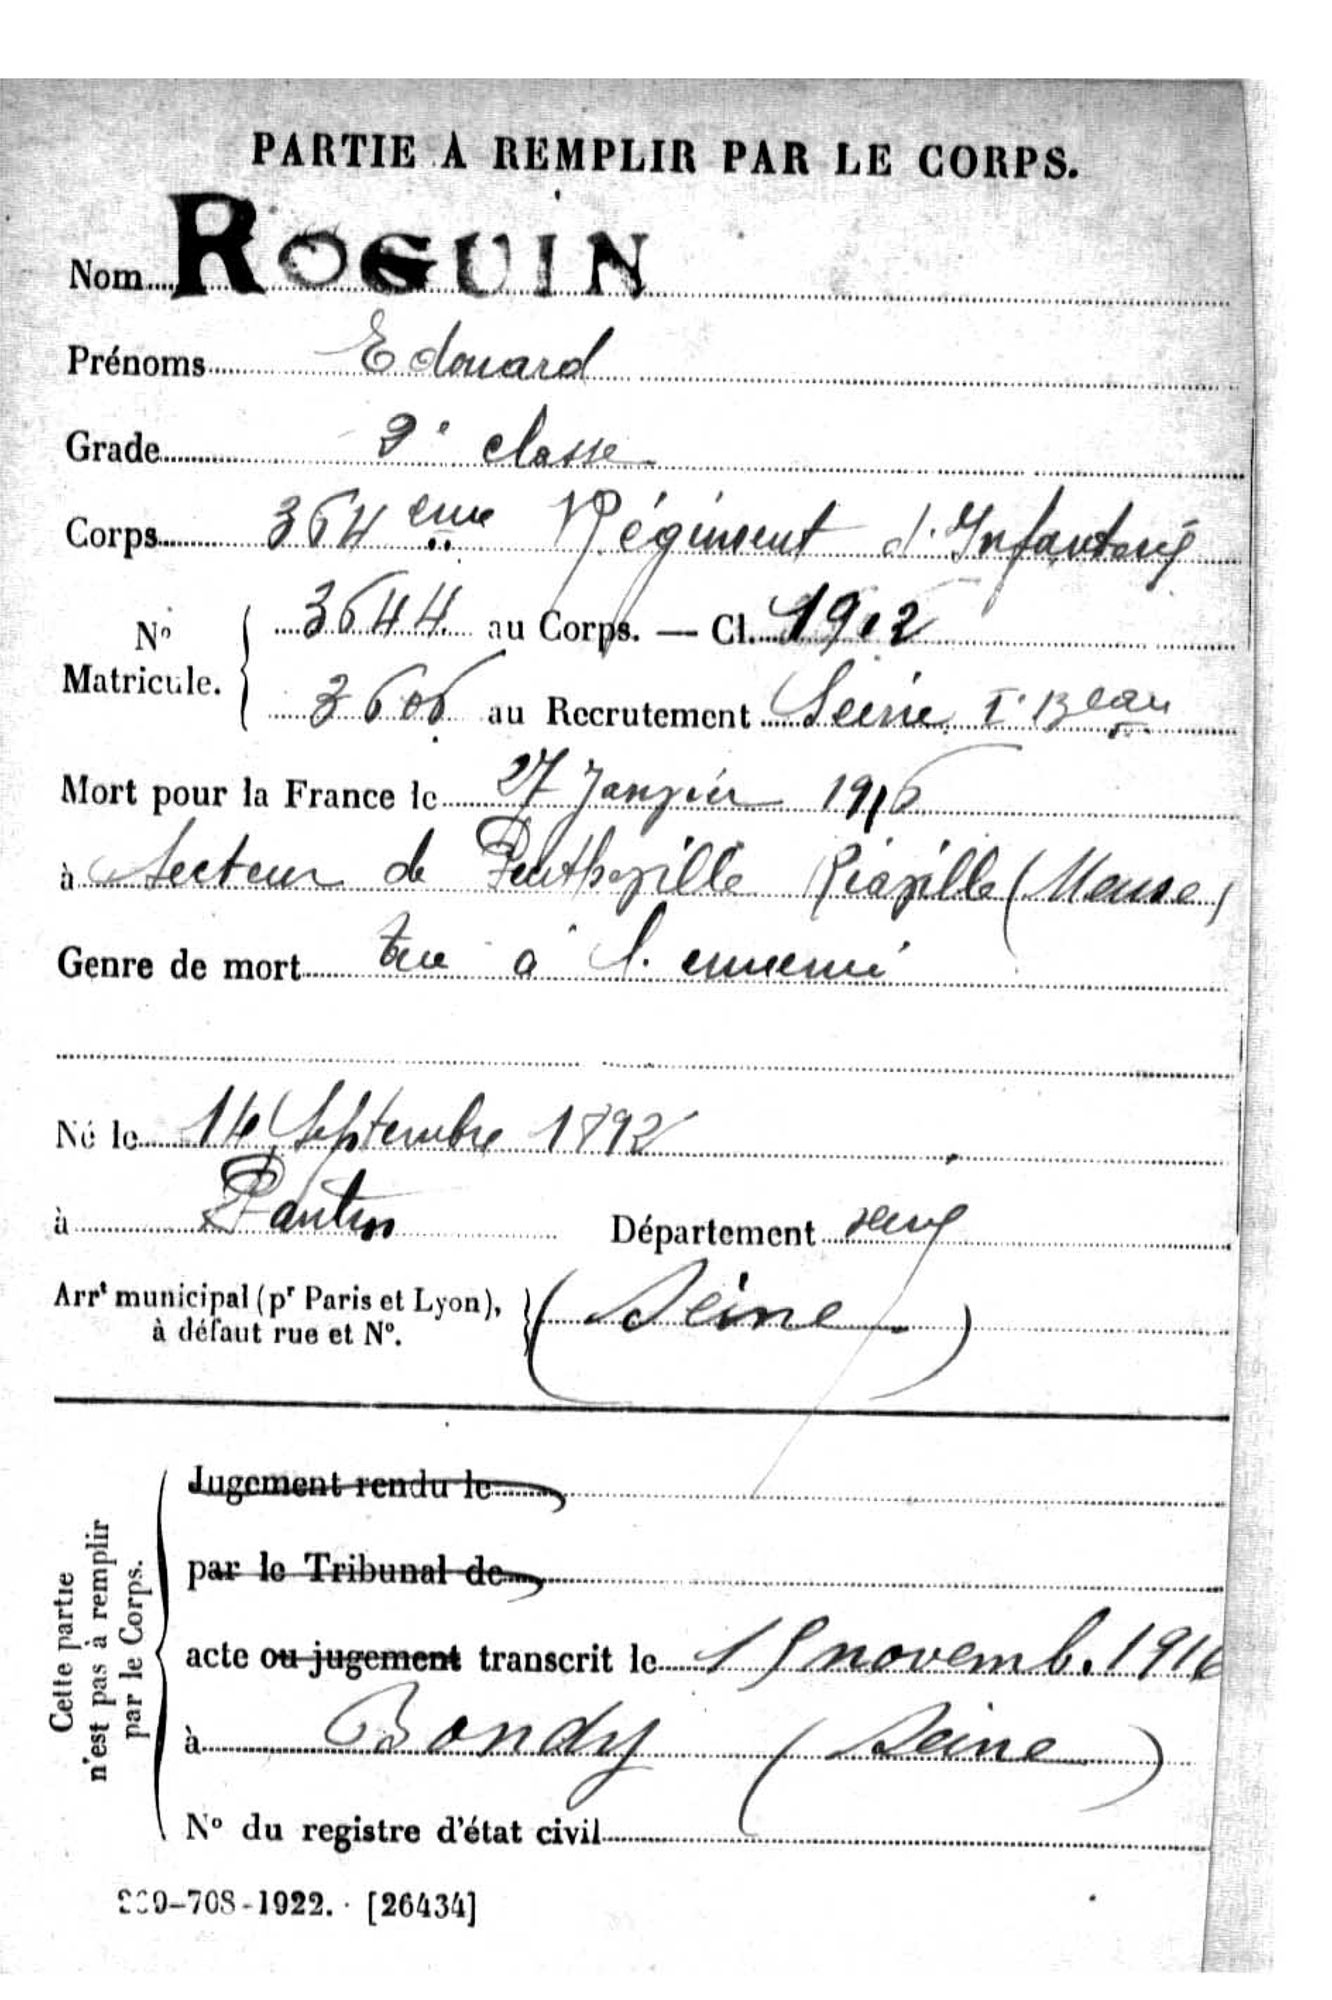 PARTIE À REMPLIR PAR LE CORPS.
Nom ROGUIN
Prénoms Edouard
Grade 2e classe
Corps 364eme Régiment d'Infanterie
No Matricule. 3644 au Corps. — Cl. 1912
3606 au Recrutement Seine 1er Beau
Mort pour la France le 27 Janvier 1916
à Secteur de Riaville (Meuse)
Genre de mort tué à l'ennemi
Né le 14 Septembre 1892
à Pantin Département
Arrt municipal (pr Paris et Lyon), à défaut rue et No. (Seine)
Cette partie n'est pas à remplir par le Corps.
Jugement rendu le
par le Tribunal de
acte ou jugement transcrit le 15 novemb. 1916
à Bondy (Seine)
No du registre d'état civil
-708-1922. [26434]